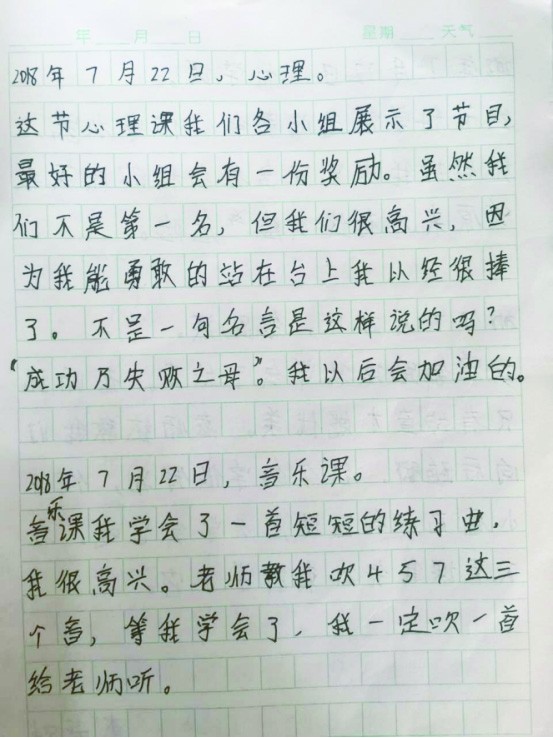 年 月 日 星期 天气
2018年7月22日,心理。
这节心理课我们各小组展示了节目,
最好的小组会有一份奖励。虽然我
们不是第一名,但我们很高兴,因
为我能勇敢的站在台上我以经很捧
了。不是一句名言是这样说的吗?
“成功乃失败之母”。我以后会加油的。
2018年7月22日,音乐课。
音乐课我学会了一首短短的练习曲,
我很高兴。老师教我吹457这三
个音,等我学会了,我一定吹一首
给老师听。